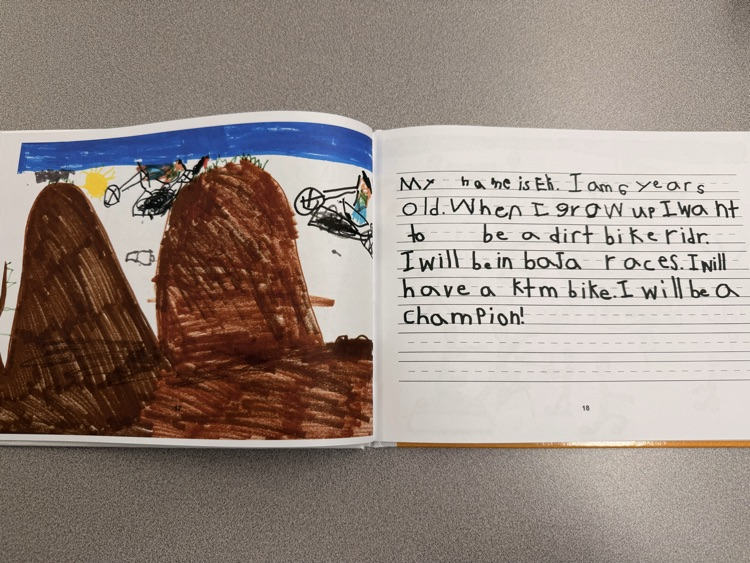 My name is I am years
old. When I grow up I want
to be a dirt bike ridr.
I will be in baJa races. I will
have a ktm bike. I will be a
champion!
17
18